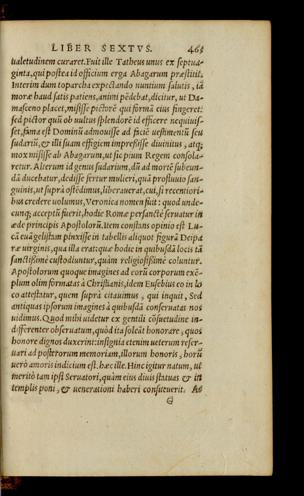 LIBER SEXTVS. 465
ualetudinem curaret. Fuit ille Tatheus unus ex septua-
ginta, qui postea id officium erga Abagarum præstitit.
Interim dum toparcha expectando nuntium salutis, iā
moræ haud satis patiens, animi pēdebat, dicitur, ut Da-
masceno placet, misisse pictorē qui formā eius fingeret:
sed pictor quū ob uultus splendorē id efficere nequiuis-
set, fama est Dominū admouisse ad faciē uestimentū seu
sudariū, & illi suam effigiem impreßisse diuinitus, atq;
mox misisse ab Abagarum, ut sic pium Regem consola-
retur. Alterum id genus sudarium, dū ad mortē subeun-
dā ducebatur, dedisse fertur mulieri, quā profluuio san-
guinis, ut suprà ostēdimus, liberauerat, cui, si recentiori-
bus credere uolumus, Veronica nomen fuit: quod unde-
cunq; acceptū fuerit, hodie Romæ persanctè seruatur in
æde principis Apostolorū. Item constans opinio est Lu-
cā euāgelistam pinxisse in tabellis aliquot figurā Deipa
ræ uirginis, qua illa erat: quæ hodie in quibusdā locis tā
sanctißimè custodiuntur, quàm religiosißimè coluntur.
Apostolorum quoque imagines ad eorū corporum exē-
plum olim formatas à Christianis, idem Eusebius eo in lo
co attestatur, quem suprà citauimus, qui inquit, Sed
antiquas ipsorum imagines à quibusdā conseruatas nos
uidimus. Quod mihi uidetur ex gentili cōsuetudine in-
differenter obseruatum, quòd ita soleāt honorare, quos
honore dignos duxerint: insignia etenim ueterum reser-
uari ad posterorum memoriam, illorum honoris, horū
uerò amoris indicium est. hæc ille. Hinc igitur natum, ut
meritò tam ipsi Seruatori, quàm eius diuis statuas & in
templis poni, & uenerationi haberi consueuerit. Ad
G